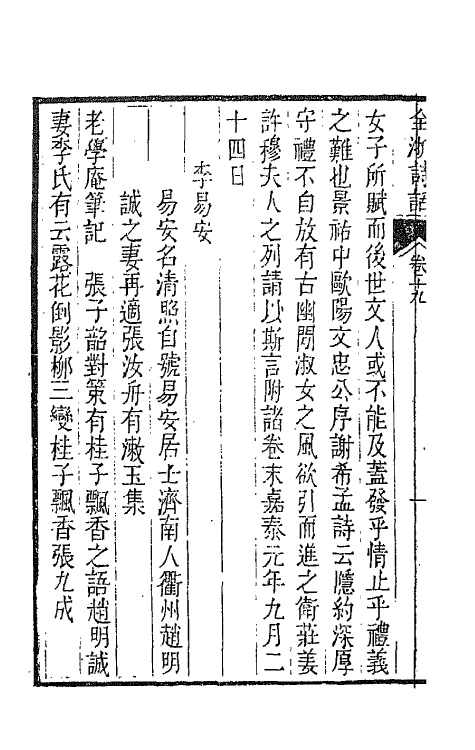 全浙詩話 卷十九
女子所賦而後世文人或不能及蓋發乎情止乎禮義
之難也景祐中歐陽文忠公序謝希孟詩云隱約深厚
守禮不自放有古幽閒淑女之風欲引而進之衛莊姜
許穆夫人之列請以斯言附諸卷末嘉泰元年九月二
十四日
李易安
易安名清照自號易安居士濟南人衢州趙明
誠之妻再適張汝舟有漱玉集
老學庵筆記 張子韶對策有桂子飄香之語趙明誠
妻李氏有云露花倒影柳三變桂子飄香張九成